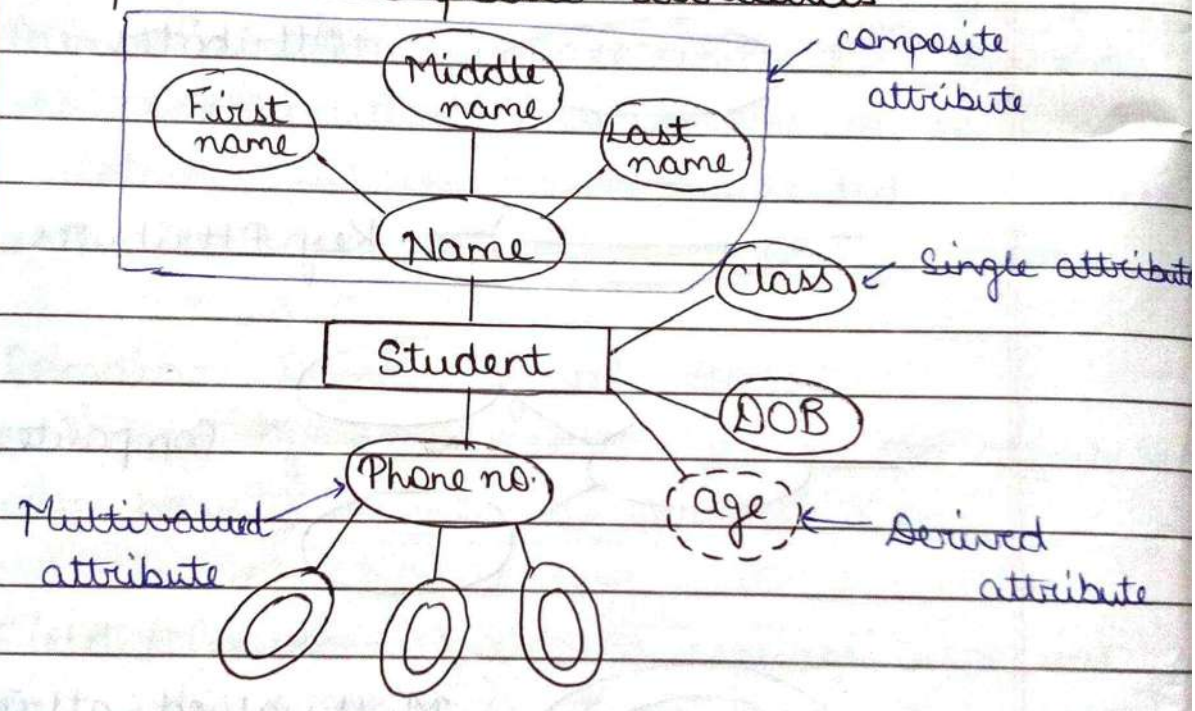 composite
attribute
Middle
name
First
name
Last
name
Name
Class
Single attribute
Student
DOB
Phone no.
age
Multivalued
attribute
Derived
attribute